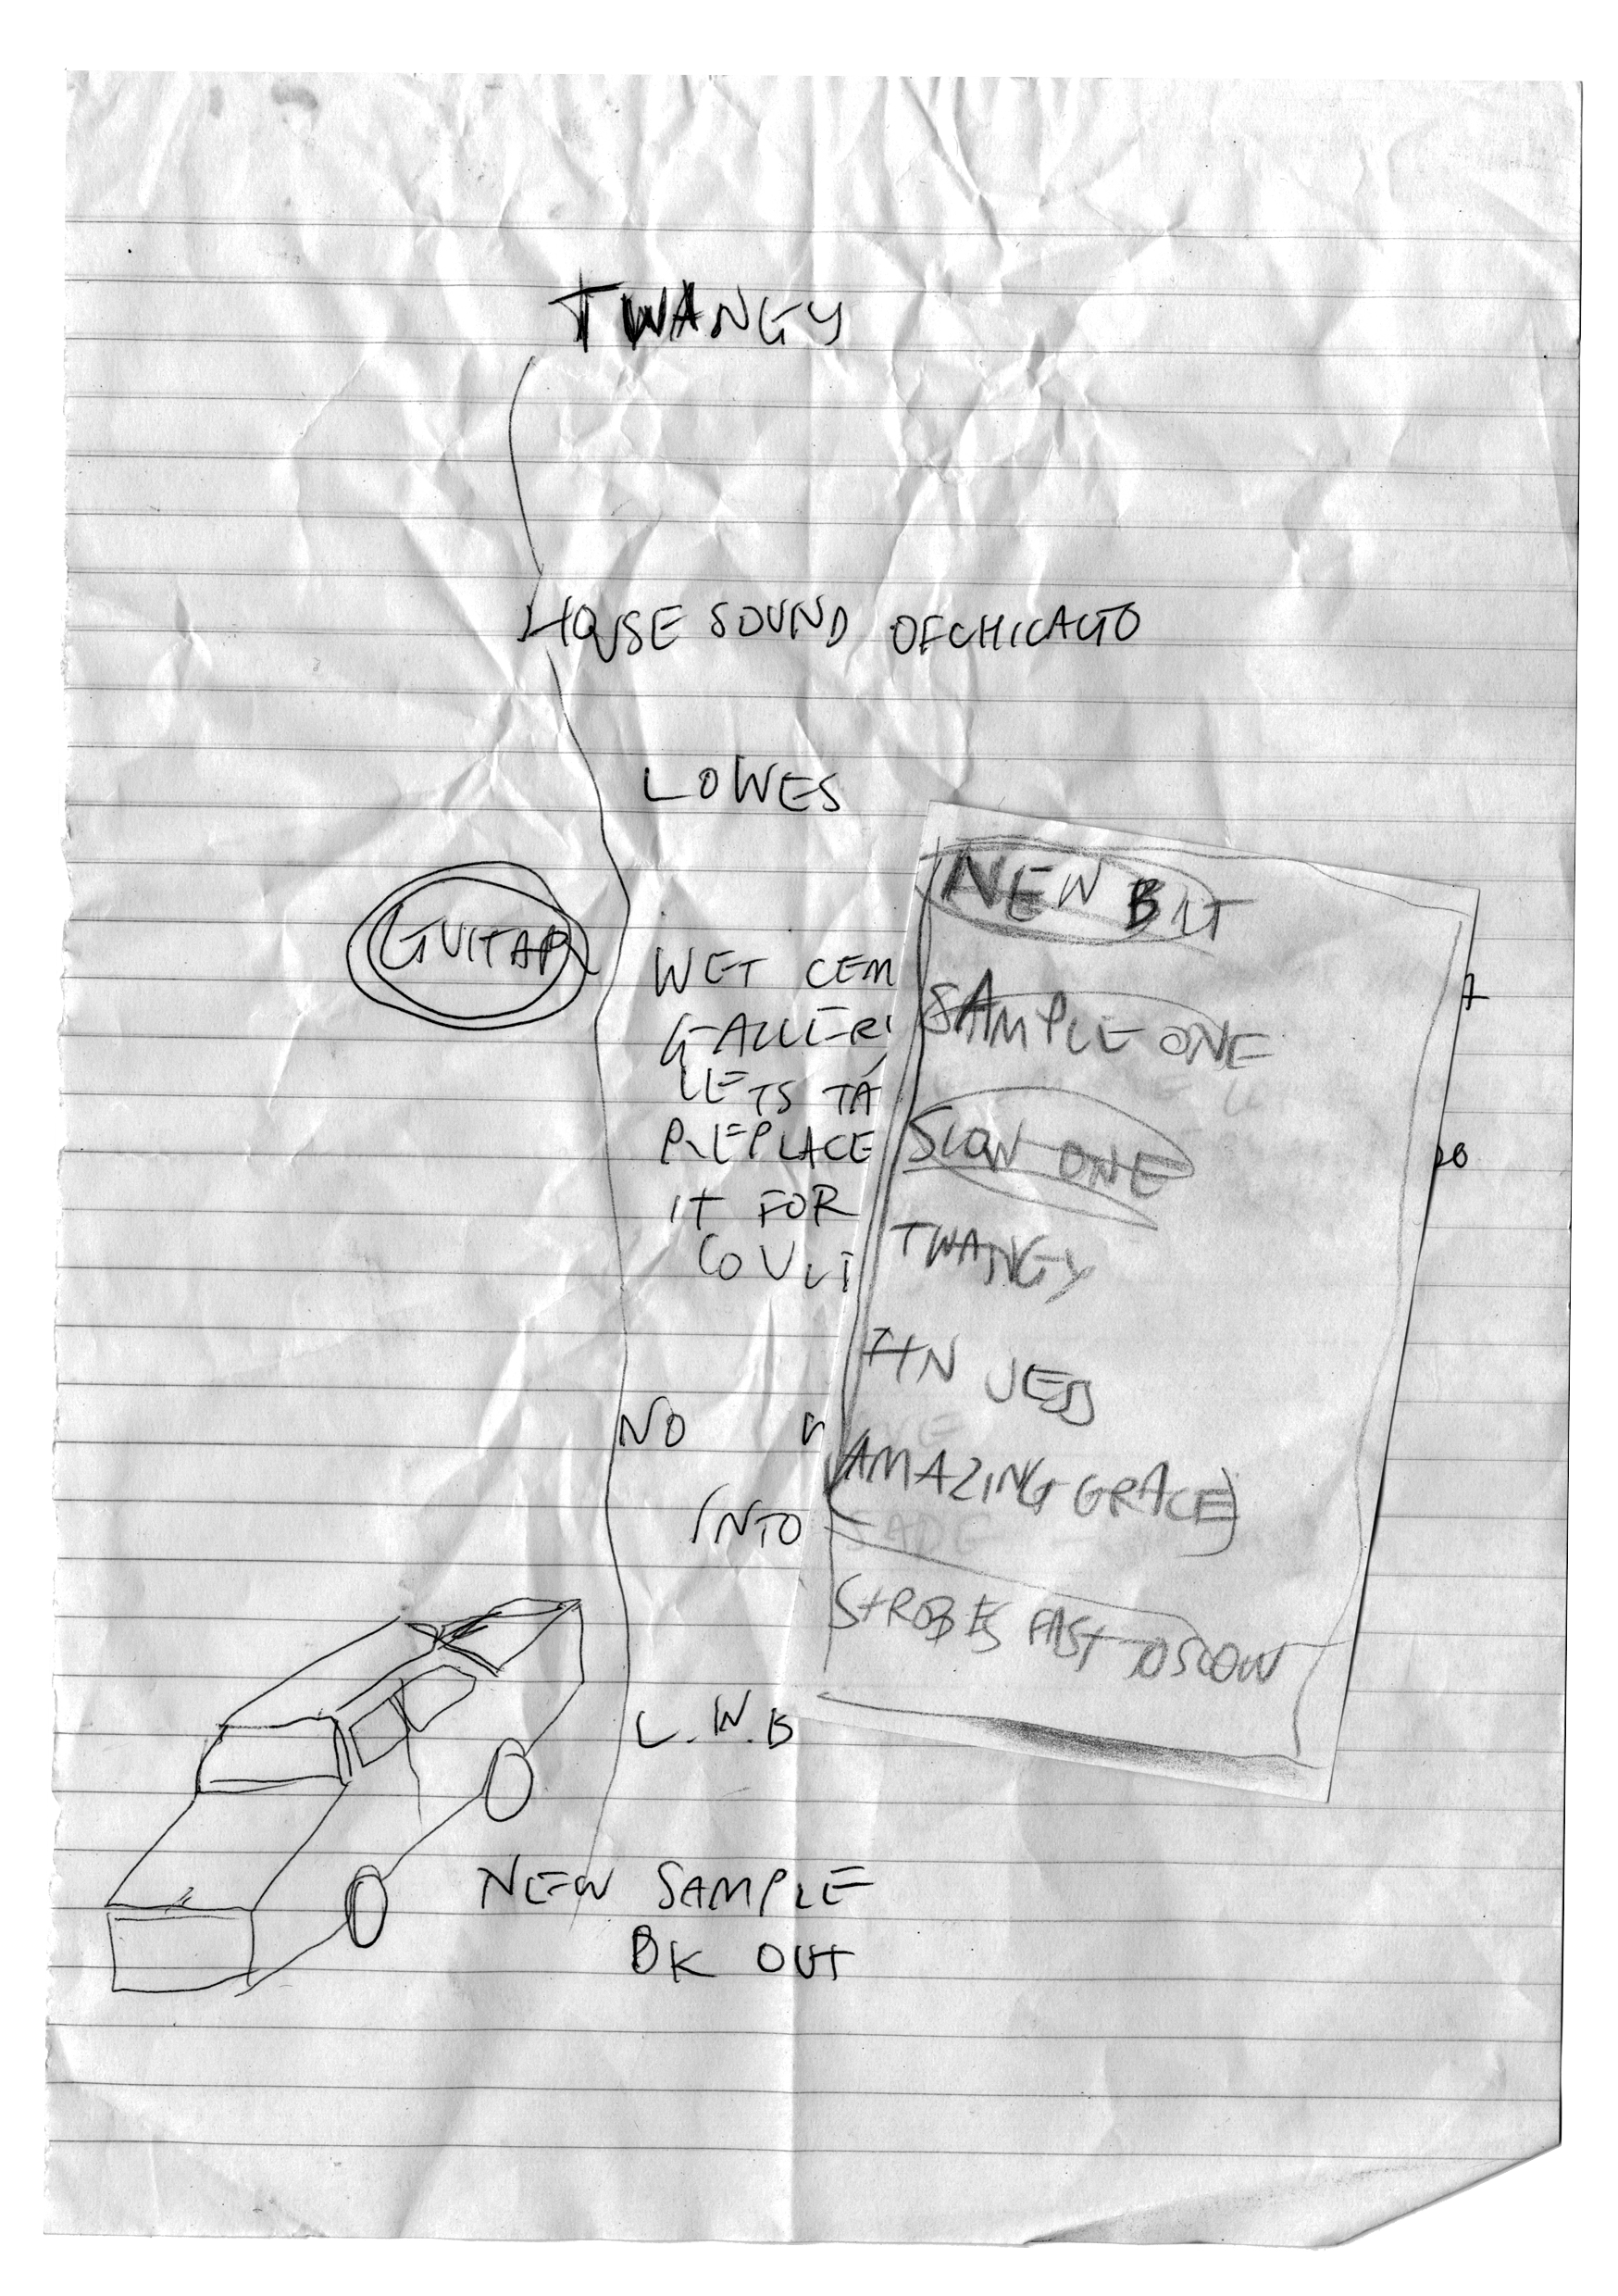 TWANGY
HOUSE SOUND OF CHICAGO
LOWES
GUITAR
WET CEM
GALLER
LETS TA
REPLACE
IT FOR
COUL
NO
INTO
L.W.B
NEW SAMPLE
BK OUT
NEW BIT
SAMPLE ONE
SLOW ONE
TWANGY
AMAZING GRACE)
STROBES FAST TO SLOW